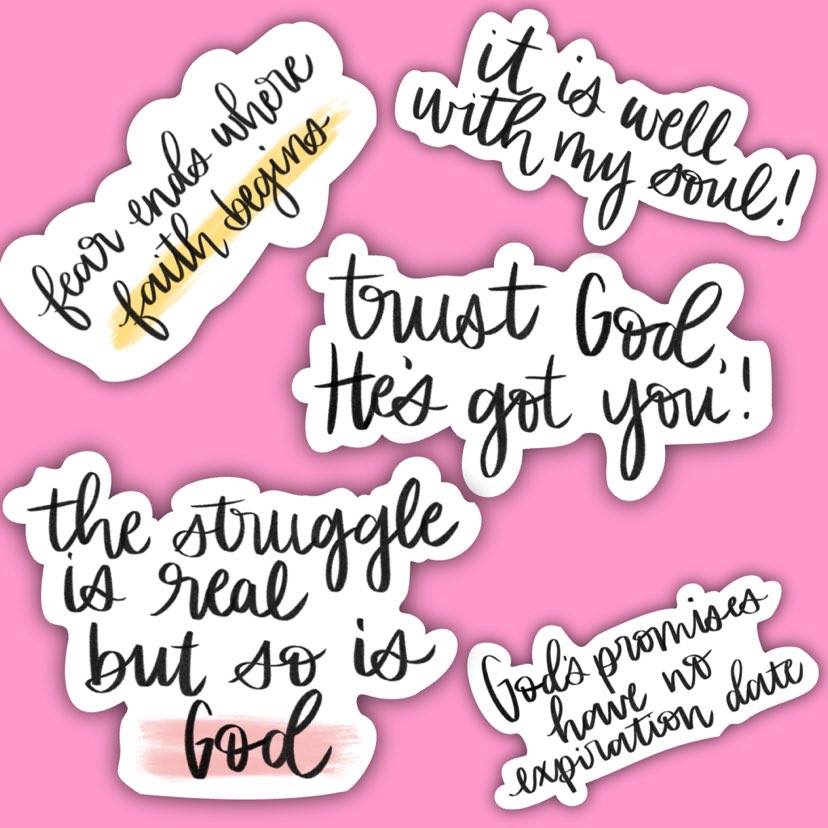 fear ends where
faith begins
it is well
with my soul!
trust God,
He's got you!
the struggle
is real
but so is
God
God's promises
have no
expiration date